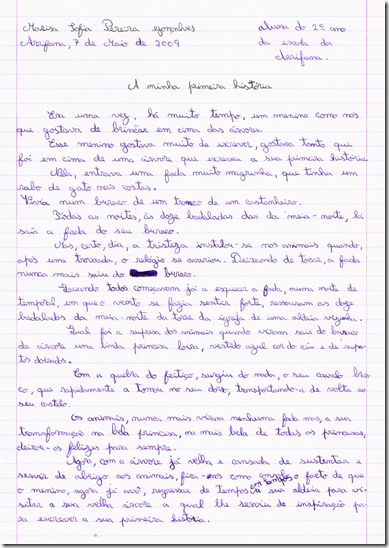 Marisa Sofia Pereira Gonçalves aluna do 2º ano
Arrifana, 7 de Maio de 2009 da escola da
Arrifana.
A minha primeira história
Era uma vez, há muito tempo, um menino como nós
que gostava de brincar em cima das árvores.
Esse menino gostava muito de escrever, gostava tanto que
foi em cima de uma árvore que escreveu a sua primeira história
Nela, entrava uma fada muito magrinha, que tinha um
rabo de gato nas costas.
Vivia num buraco de um tronco de um castanheiro.
Todas as noites, às doze badaladas das da meia-noite, lá
saía a fada do seu buraco.
Mas, certo, dia, a tristeza instalou-se nos animais quando,
após uma trovoada, o relógio se avariou. Deixando de tocar, a fada
nunca mais saiu do buraco.
Quando todos começavam já a esquecer a fada, numa noite de
temporal, em que o vento se fazia sentir forte, ressoaram as doze
badaladas da meia-noite da torre da igreja de uma aldeia vizinha.
Qual foi a supresa dos animais quando viram sair do buraco
da árvore uma linda princesa loira, vestido azul cor do céu e de sapa-
tos dourados.
Com a quebra do feitiço, surgiu do nada, o seu cavalo bran-
co, que rapidamente a tomou no seu dorso, transportando-a de volta ao
seu castelo.
Os animais, nunca mais viram nenhuma fada mas, a sua
transformação na bela princesa, na mais bela de todas as princesas,
deixou-os felizes para sempre.
Agora, com a árvore já velha e cansada de sustentar e
servir de abrigo aos animais, fica-nos como o facto de que
o menino, agora já avô, regressa de tempos em tempos à sua aldeia para vi-
sitar a sua velha árvore a qual lhe serviu de inspiração pa-
ra escrever a sua primeira história.